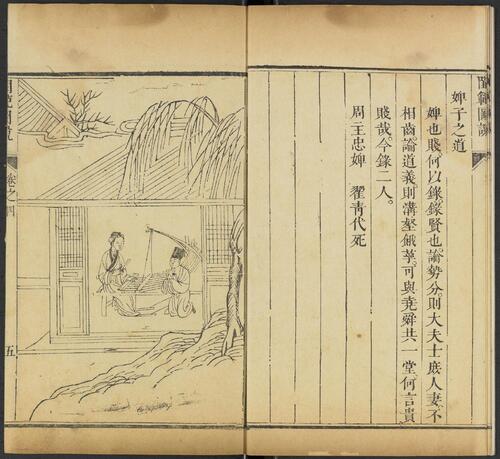 閨範圖說
婢子之道
婢也賤何以錄錄賢也論勢分則大夫士庶人妻不
相齒論道義則溝壑餓莩可與堯舜共一堂何言貴
賤哉今錄二人
周主忠婢　翟青代死
閨範圖說
卷之四
五